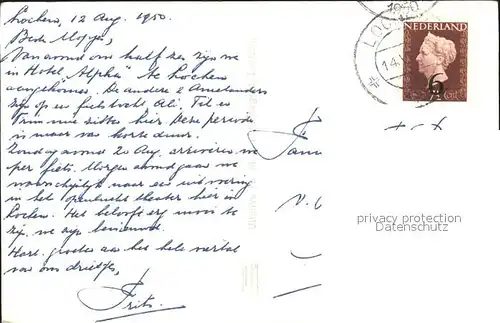 Lochem, 12 Aug. 1950.
Beste Mopje,
Vanavond om half zes zijn we
in Hotel "Alpha" te Lochem
aangekomen. De andere 2 Amelanders
zijn op er fietstocht Ali, Til en
Truus zitten hier. Deze periode
is maar van korte duur.
Zondag avond 20 Aug. arriveren we
per fiets. Morgen avond gaan we
waarschijnlijk naar een uitvoering
in het openlucht theater hier in
Lochem. Het belooft erg mooi te
zijn, we zijn benieuwd.
Hart. groeten aan het hele
van ons drietjes,
Frits
Fam
1950
LOC
14.
NEDERLAND
6
privacy protection
Datenschutz